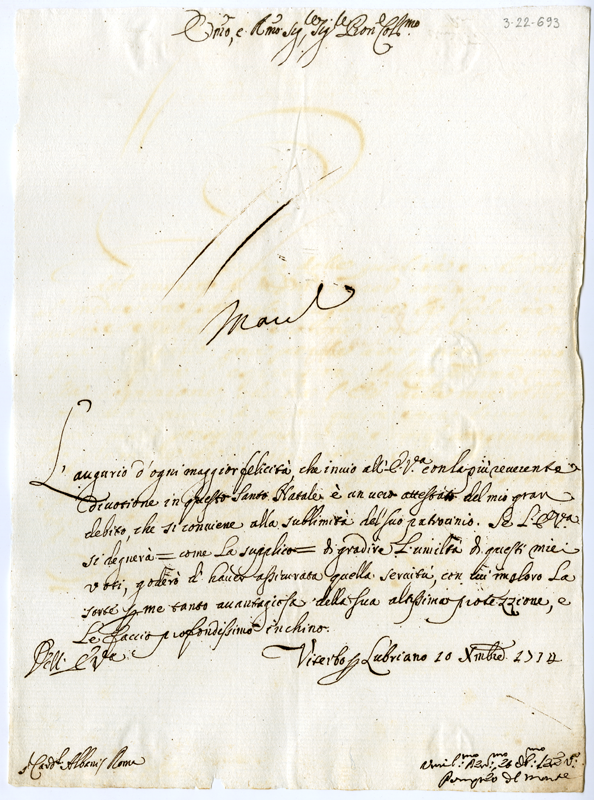 3-22-693
Em̃o, e Rm̃o Sig.re Sig.re Pron Col.mo
L'augurio d'ogni maggior felicità che inuio all'E.Va con la più reuerente
diuotione in questo Santo Natale è un uero attestato del mio gran
debito, che si conuiene alla sublimità del suo patrocinio. Se L'E.Va
si degnerà = come La supplico = di gradire L'umiltà di questi miei
voti, goderò d'hauer assicurata quella seruitù, con cui imploro La
sorte p me tanto auantagiosa della sua altissima protezzione, e
Le faccio profondissimo inchino.
Dell' E.Va
Viterbo p Lubriano 10 Xmbre 1714
Card.le Albani Roma
Umil.mo
Pompeo del Monte